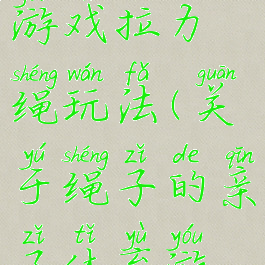 游戏拉力
shéng wán fǎ guān
绳玩法(关
yú shéng zǐ de qīn
于绳子的亲
zǐ tǐ yù yóu